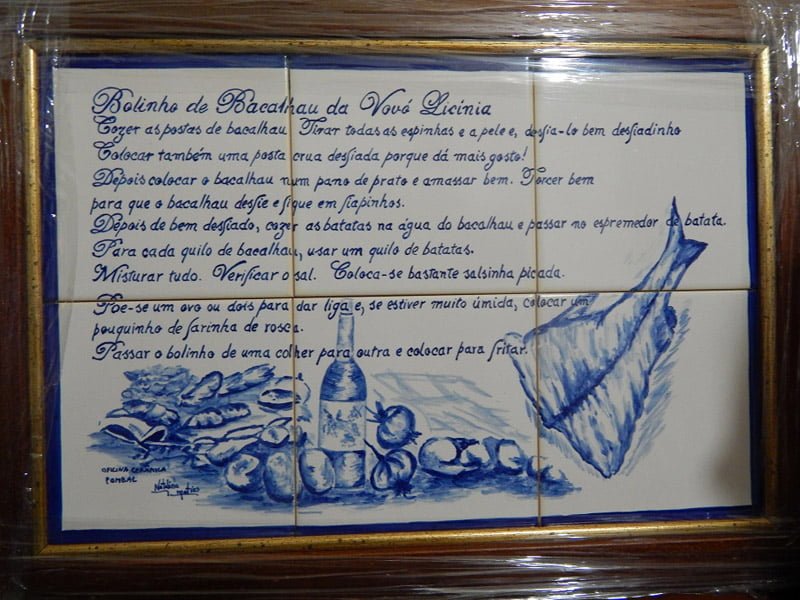 Bolinho de Bacalhau da Vovó Licínia
Cozer as postas de bacalhau Tirar todas as espinhas e a pele e, desfia-lo bem desfiadinho
Colocar também uma posta crua desfiada porque dá mais gosto!
Depois colocar o bacalhau num pano de prato e amassar bem. Torcer bem
para que o bacalhau desfie e fique em fiapinhos.
Depois de bem desfiado, cozer as batatas na água do bacalhau e passar no espremedor de batata.
Para cada quilo de bacalhau, usar um quilo de batatas.
Misturar tudo. Verificar o sal. Coloca-se bastante salsinha picada.
Põe-se um ovo ou dois para dar liga e, se estiver muito úmida, colocar um
pouquinho de farinha de rosca.
Passar o bolinho de uma colher para outra e colocar para fritar.
OFICINA CERÂMICA
POMBAL